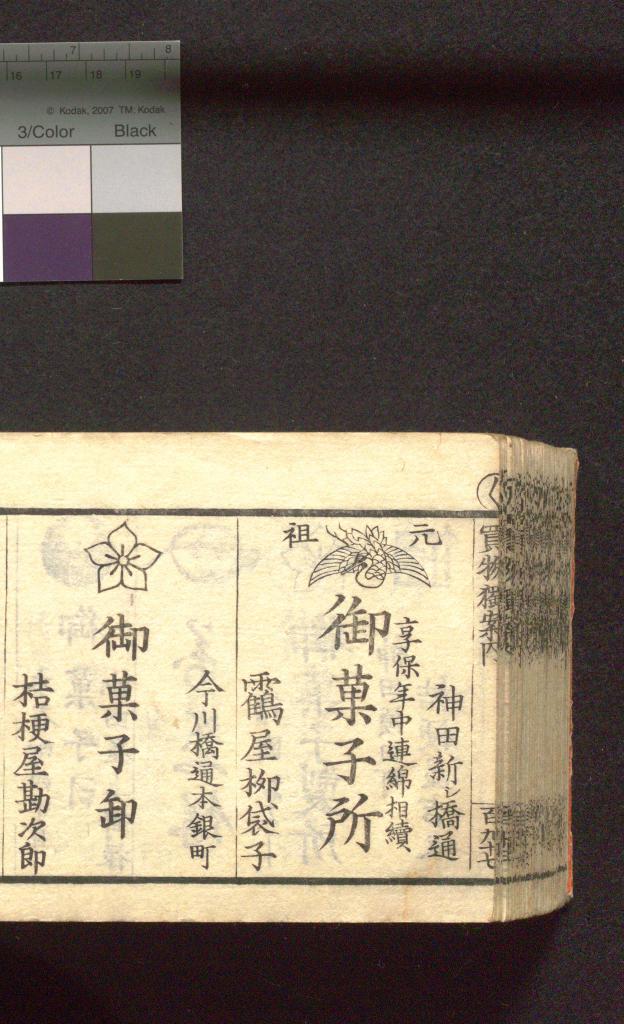 7 8
16 17 18 19
© Kodak, 2007 TM: Kodak
3/Color Black
く
買物獨案内
百九十七
元祖
神田新シ橋通
享保年中連綿相續
御菓子所
靏屋柳袋子
今川橋通本銀町
御菓子卸
桔梗屋勘次郎